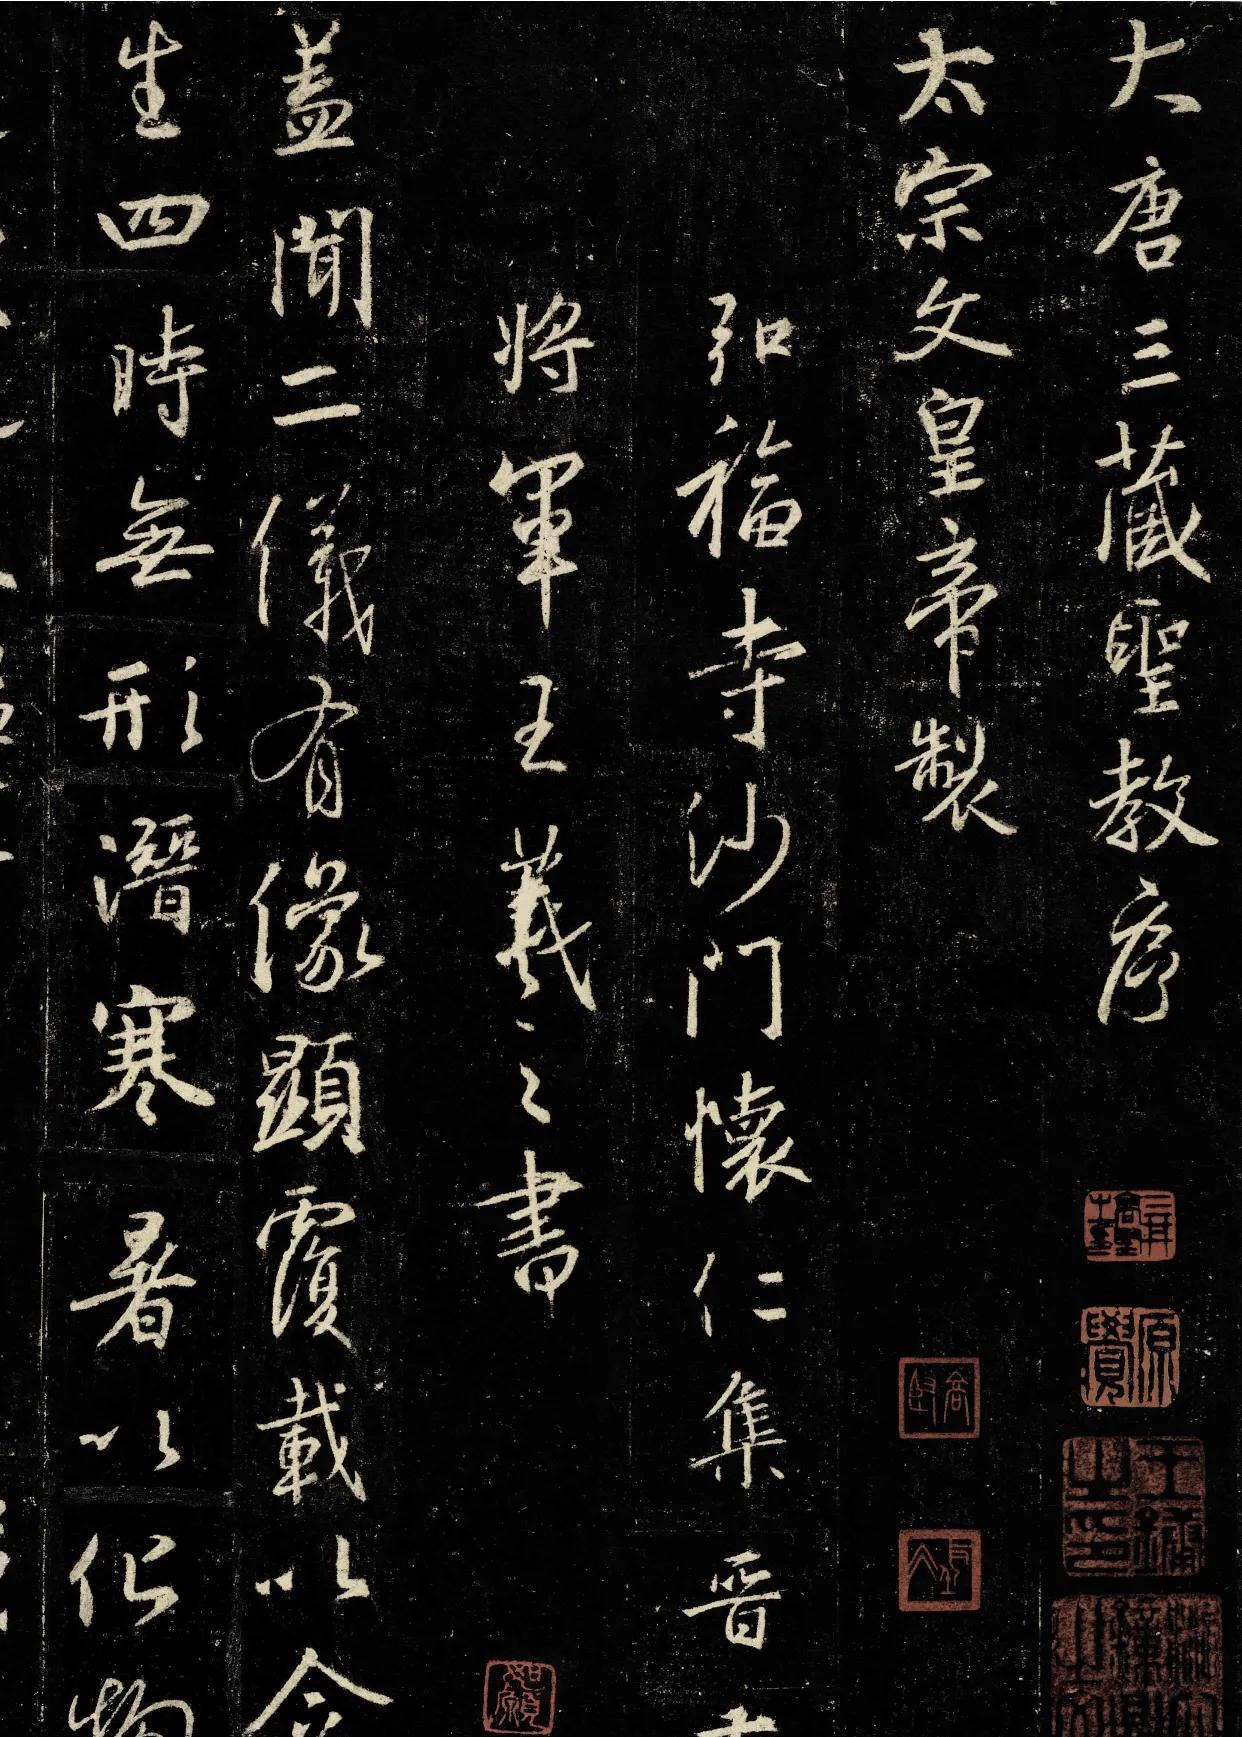 大唐三藏聖教序
太宗文皇帝製
弘福寺沙門懷仁集晉右
將軍王羲之書
蓋聞二儀有像顯覆載以含
生四時無形潛寒暑以化物
如願